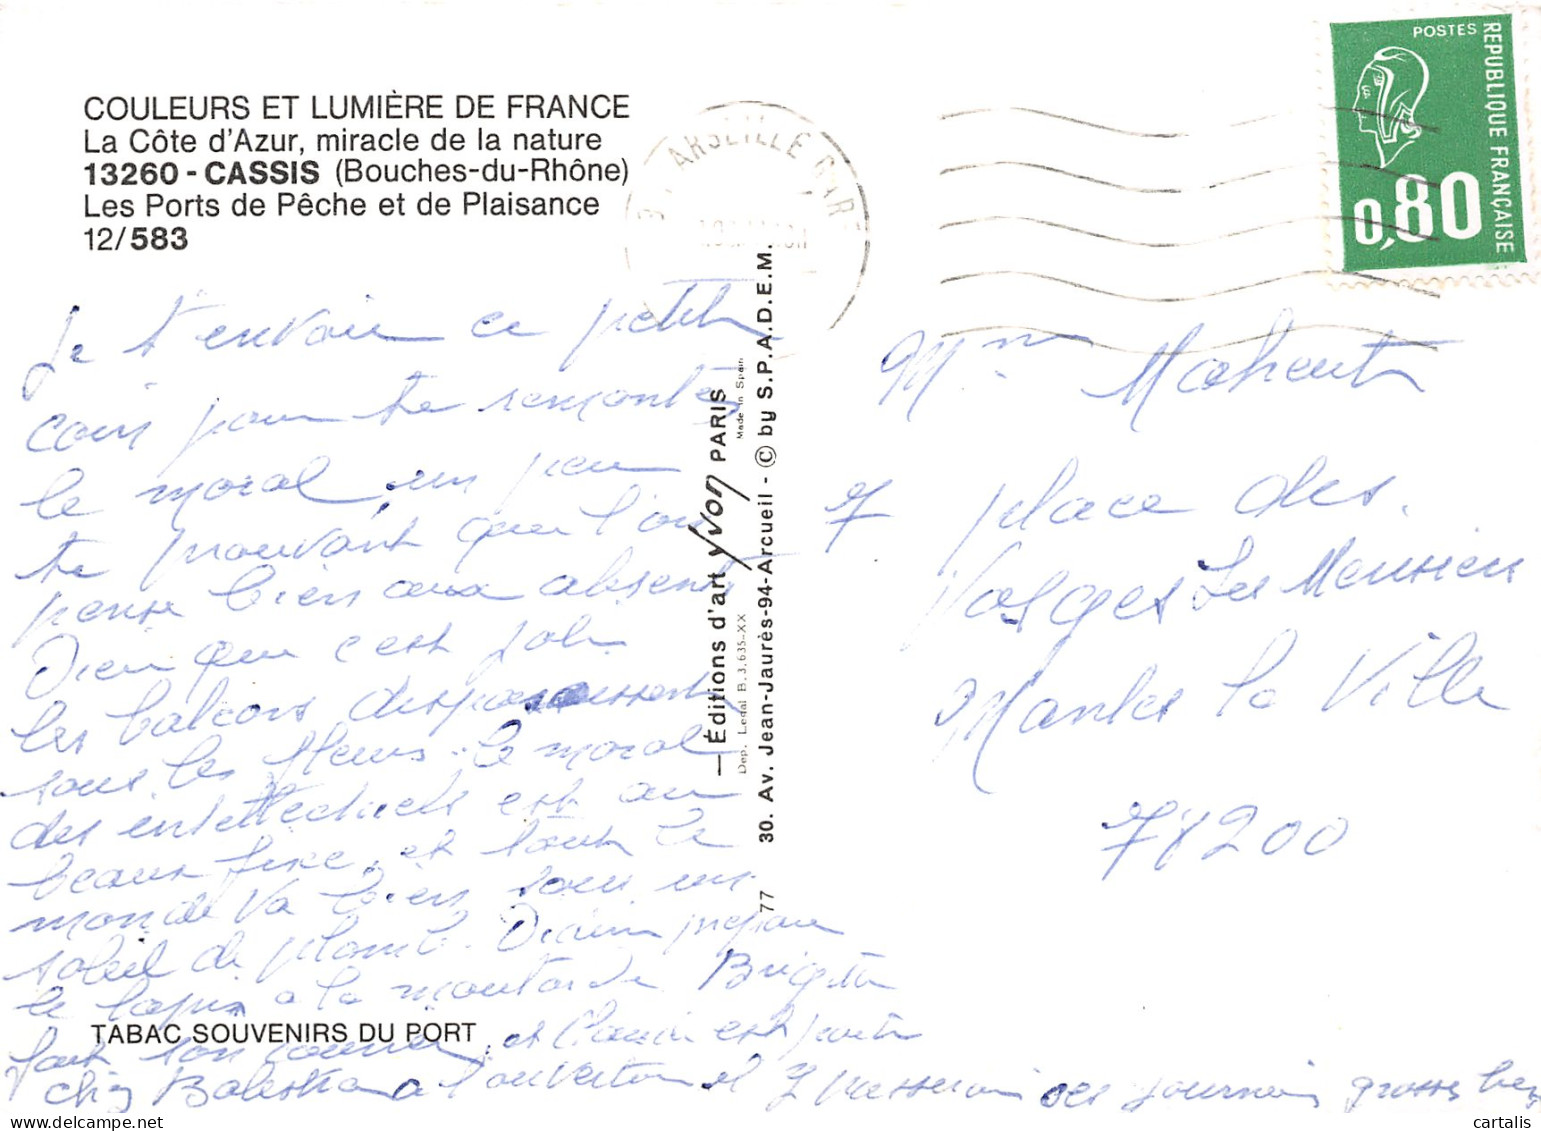 COULEURS ET LUMIÈRE DE FRANCE
La Côte d'Azur, miracle de la nature
13260 - CASSIS (Bouches-du-Rhône)
Les Ports de Pêche et de Plaisance
12/583
POSTES
REPUBLIQUE FRANÇAISE
0,80
ARSEILLE GARE
Je t'envoie ce petit
coin pour te remonter
le moral un peu
te prouvant que l'on
pense bien aux absents
Dieu que c'est joli
les balcons disparaissent
sous les fleurs. le moral
des intellectuels est au
beau fixe, et tout le
monde va bien sous un
soleil de plomb. prépare
le lapin a la moutarde Brigitte
fait son courrier, et Claude est partie
chez a l'ouverture il y passerai ses journées grosses bises
TABAC SOUVENIRS DU PORT
— Éditions d'art yvon PARIS
Made in Spain
Dep. Legal B. 3.635-XX
30. Av. Jean-Jaurès-94-Arcueil - © by S.P.A.D.E.M.
77
Mme Maheut
7 place des
Vosges Les Merisiers
Mantes la Ville
78200
cartalis